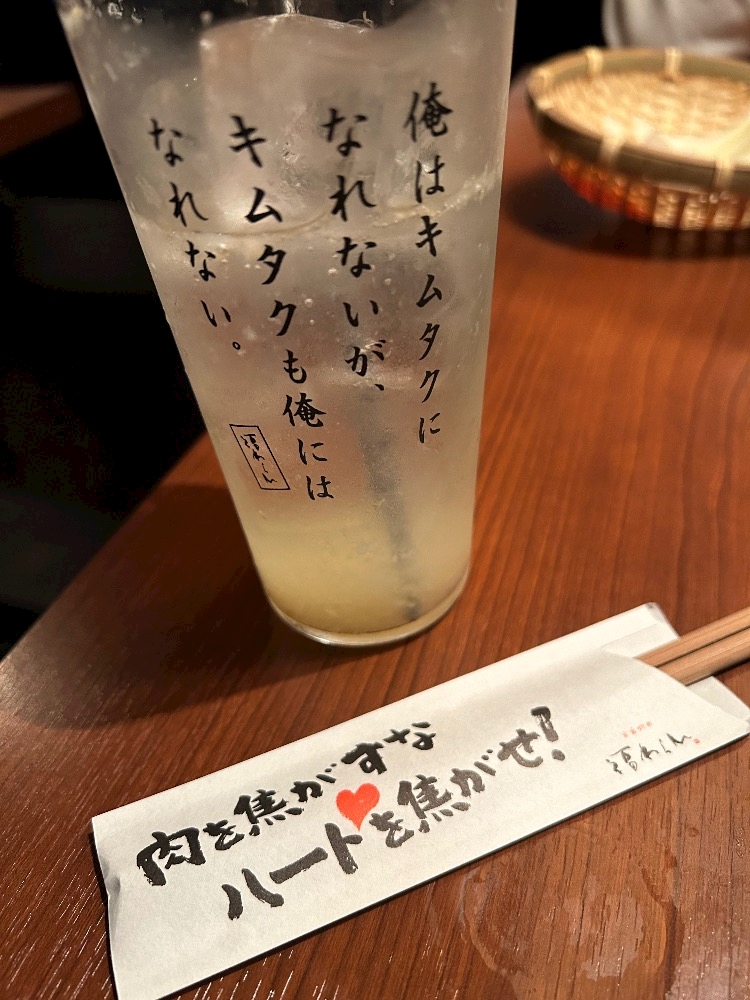 俺はキムタクに
なれないが、
キムタクも俺には
なれない。
福わらい
肉を焦がすな
ハートを焦がせ!
福わらい